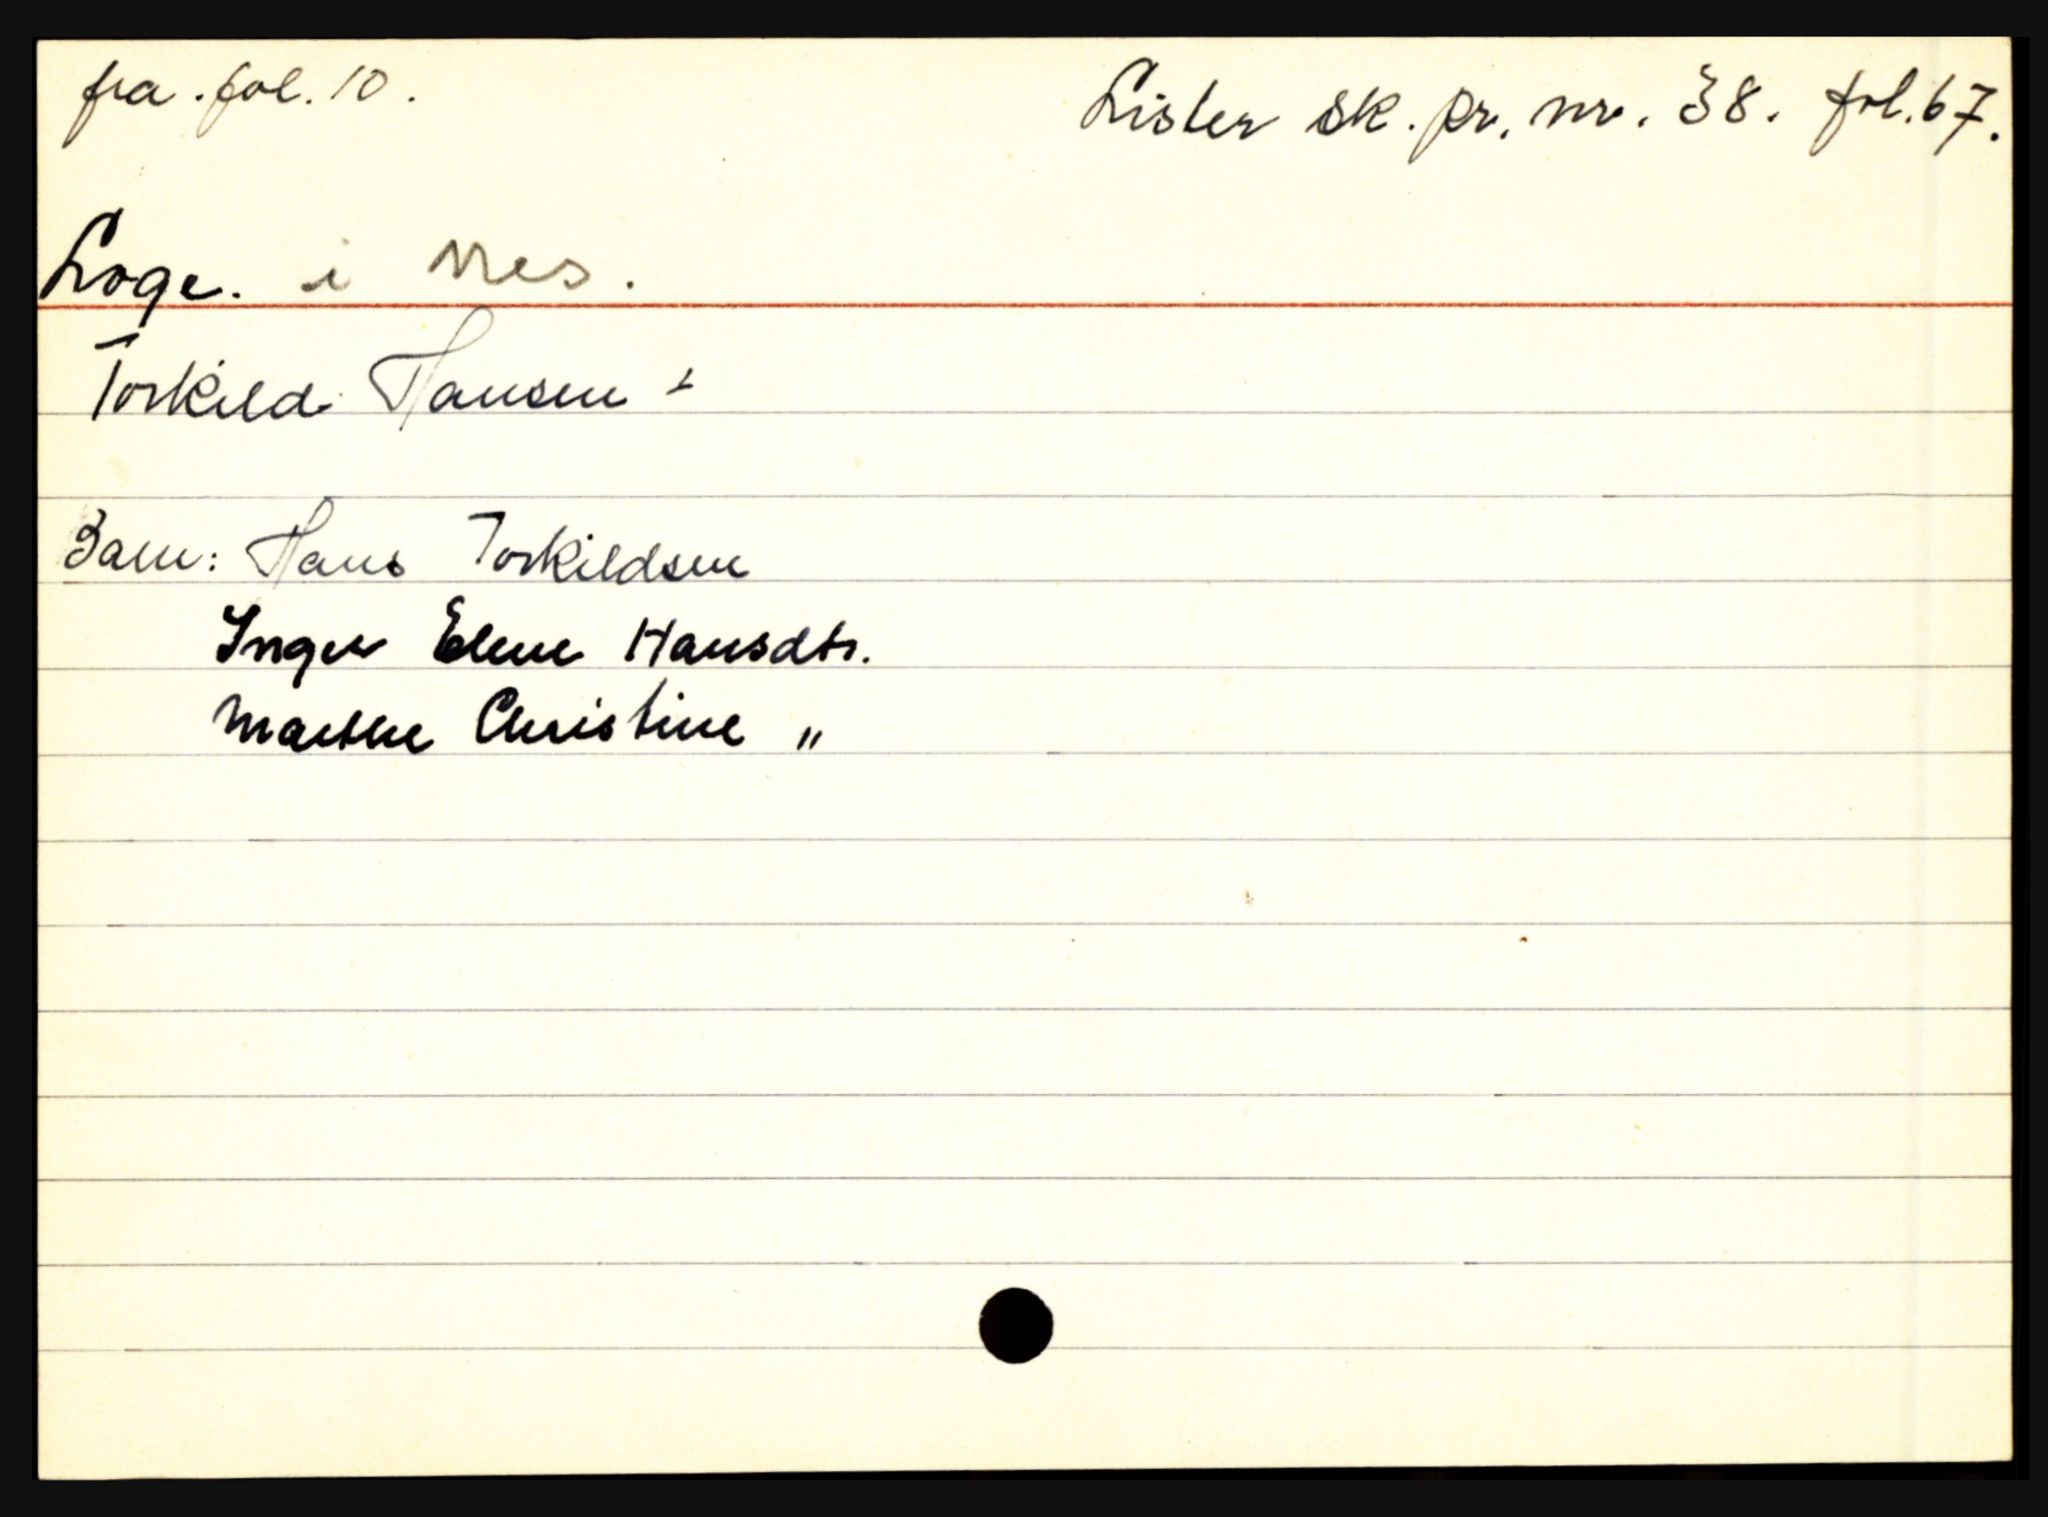 fra. fol. 10.
Lister sk. pr. nr. 38. fol. 67.
Loge. i Nes.
Torkild Hansen
Barn: Hans Torkildsen
Inger Elene Hansdtr.
Marthe Christine "